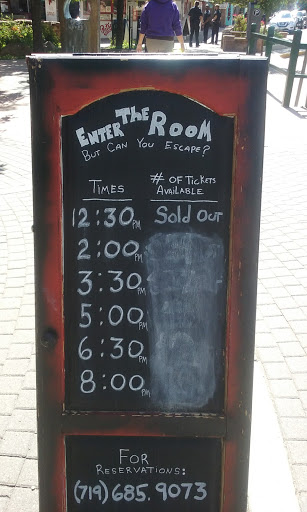 Enter The Room
But Can You Escape?
Times
# of Tickets Available
12:30 PM Sold Out
2:00 PM
3:30 PM
5:00 PM
6:30 PM
8:00 PM
For
Reservations:
(719) 685.9073